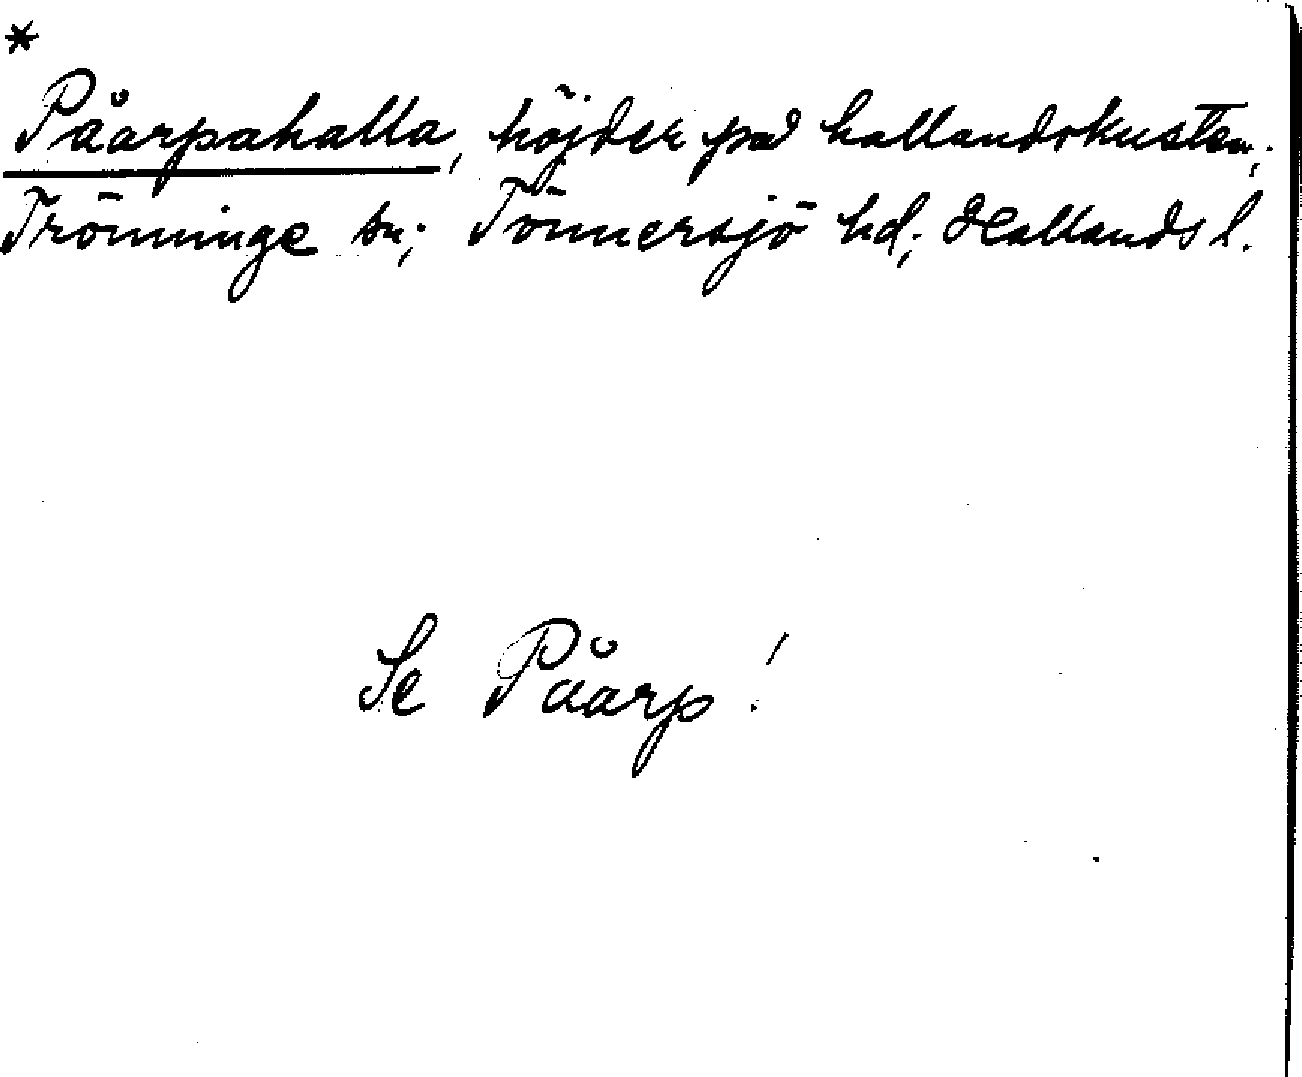 *
Påarpahalla, höjder på hallandskusten;
Trönninge sn; Tönnersjö hd; Hallands l.
Se Påarp!